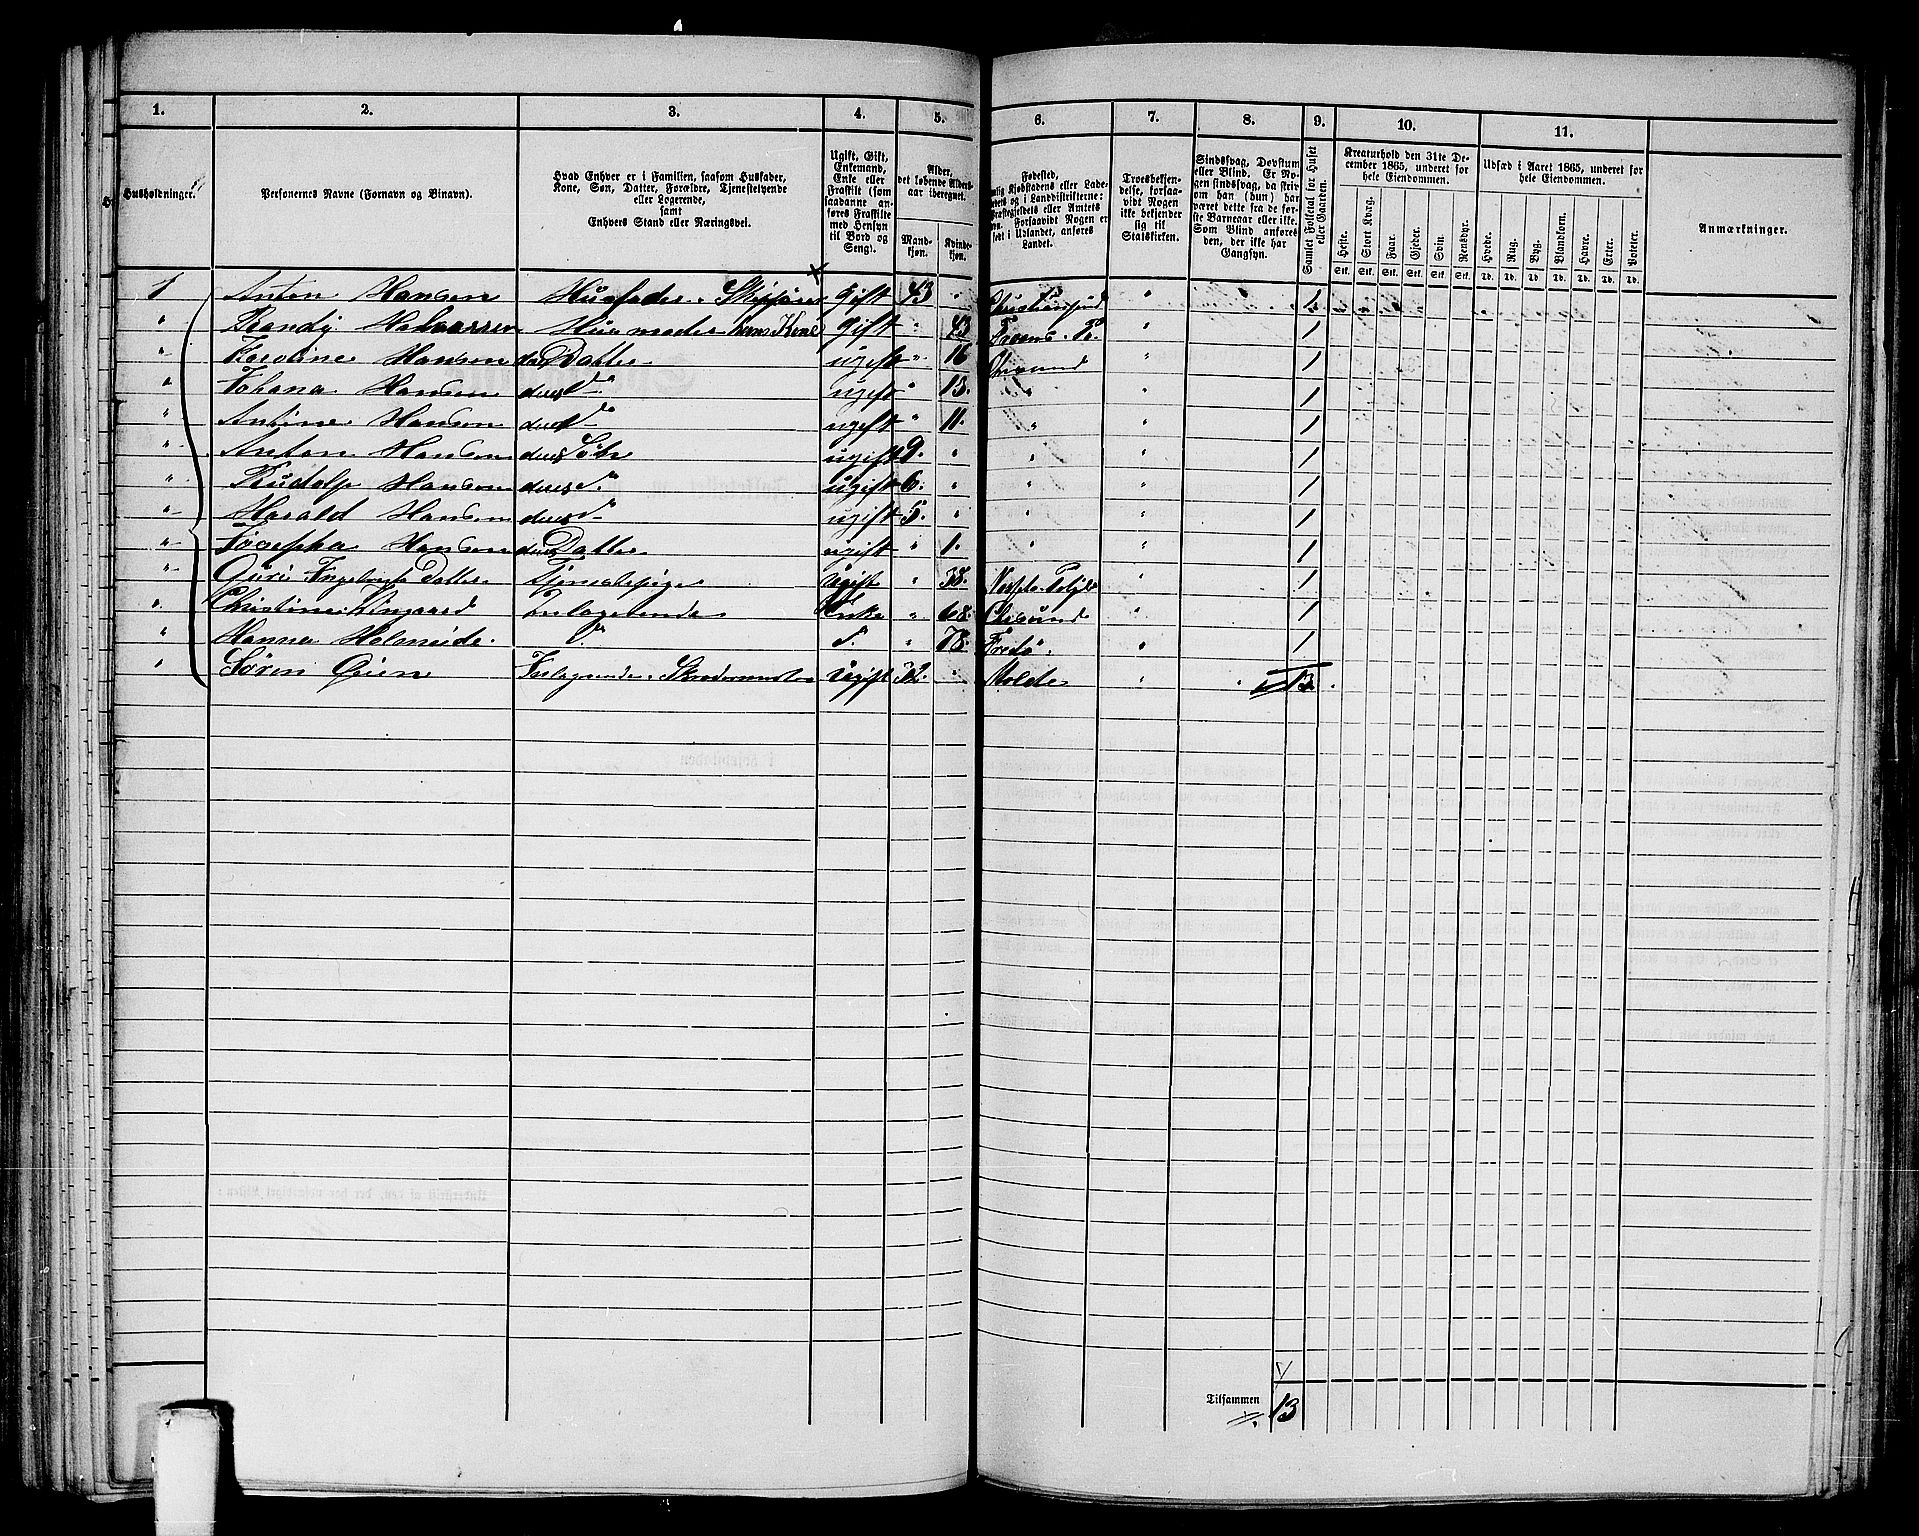 1. 2. 3. 4. 5. 6. 7. 8. 9. 10. 11.
Husholdninger.
Personernes Navne (Fornavn og Binavn).
Hvad Enhver er i Familien, saasom Husfader,
Kone, Søn, Datter, Forældre, Tjenestetyende
eller Logerende,
samt
Enhvers Stand eller Næringsvei.
Ugift, Gift,
Enkemand,
Enke eller
Fraskilt (som
saadanne an-
føres Fraskilte
med Hensyn
til Bord og
Seng).
Alder,
det løbende Alders-
aar iberegnet.
Mand-
kjøn.
Kvinde-
kjøn.
Fødested,
Kjøbstadens eller Lade-
og i Landdistrifterne:
eller Amtets
Forsaavidt Nogen er
i Udlandet, anføres
Landet.
Troesbekjen-
delse, forsaa-
vidt Nogen
ikke bekjender
sig til
Statskirken.
Sindssvag, Døvstum
eller Blind. Er No-
gen sindssvag, da skriv
om han (hun) har
været dette fra de før-
ste Barneaar eller ikke.
Som Blind anføres
den, der ikke har
Gangsyn.
Samlet Folketal for Huset
eller Gaarden.
Kreaturhold den 31te De-
cember 1865, underet for
hele Eiendommen.
Heste. Stort Kvæg. Faar. Gjeder. Svin. Rensdyr.
Stk. Stk. Stk. Stk. Stk. Stk.
Udsæd i Aaret 1865, underet for
hele Eiendommen.
Hvede. Rug. Byg. Blandkorn. Havre. Erter. Poteter.
Td. Td. Td. Td. Td. Td. Td.
Anmærkninger.
1 Anton Hansen Husfader, Skipper gift 43 " Christiansund " 1
" Randi Halvorsen Husmoder hans Kone gift " 43 " 1
" Hansen deres Datter ugift " 16 Chrsund " 1
" Johana Hansen deres Do ugift " 13. " " 1
" Antine Hansen deres Do ugift " 11. " " 1
" Anton Hansen deres Søn ugift 9. " " " 1
" Rudolp Hansen deres Do ugift 6. " " " 1
" Harald Hansen deres Do ugift 5. " " " 1
" Josepha Hansen deres Datter ugift " 1. " " 1
" Guri Datter Tjenestepige Ugift " 38. " 1
" Christine Logerende Enke " 68. Chrsund " 1
" Hanna Holmeide Do Do " 78. Fredø " 1
" Søren Øien Logerende, Skredermester Ugift 32. " Molde " 13
Tilsammen 13